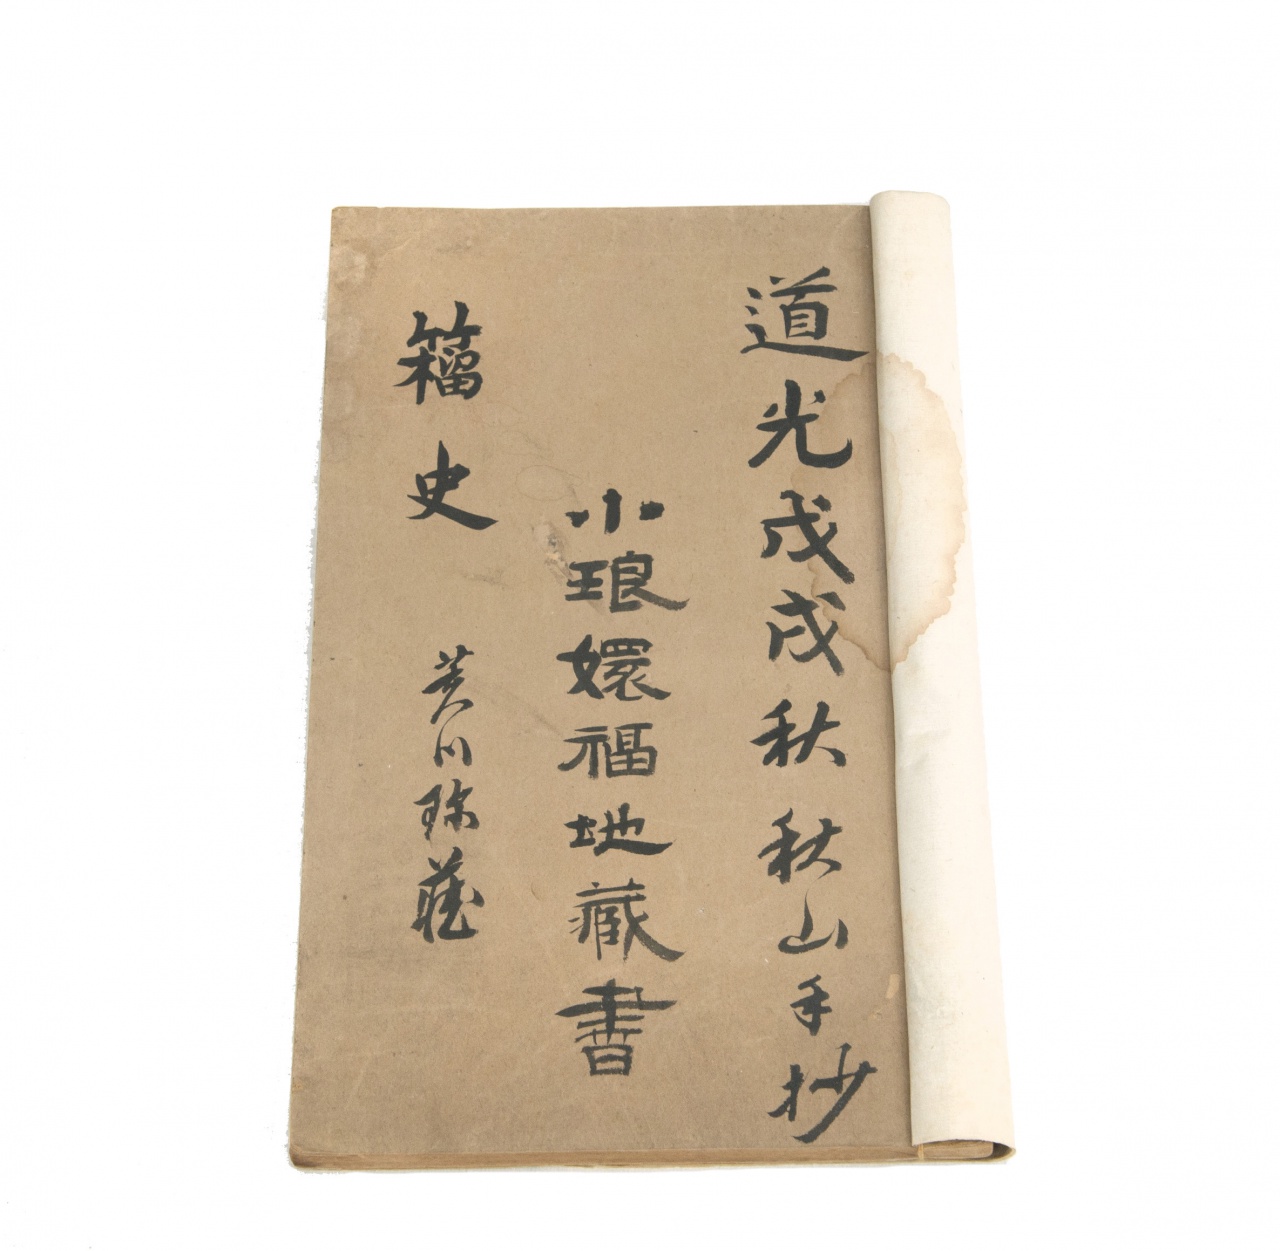 道光戊戌秋秋山手抄
小琅嬛福地藏書
籀史
芙川珎藏